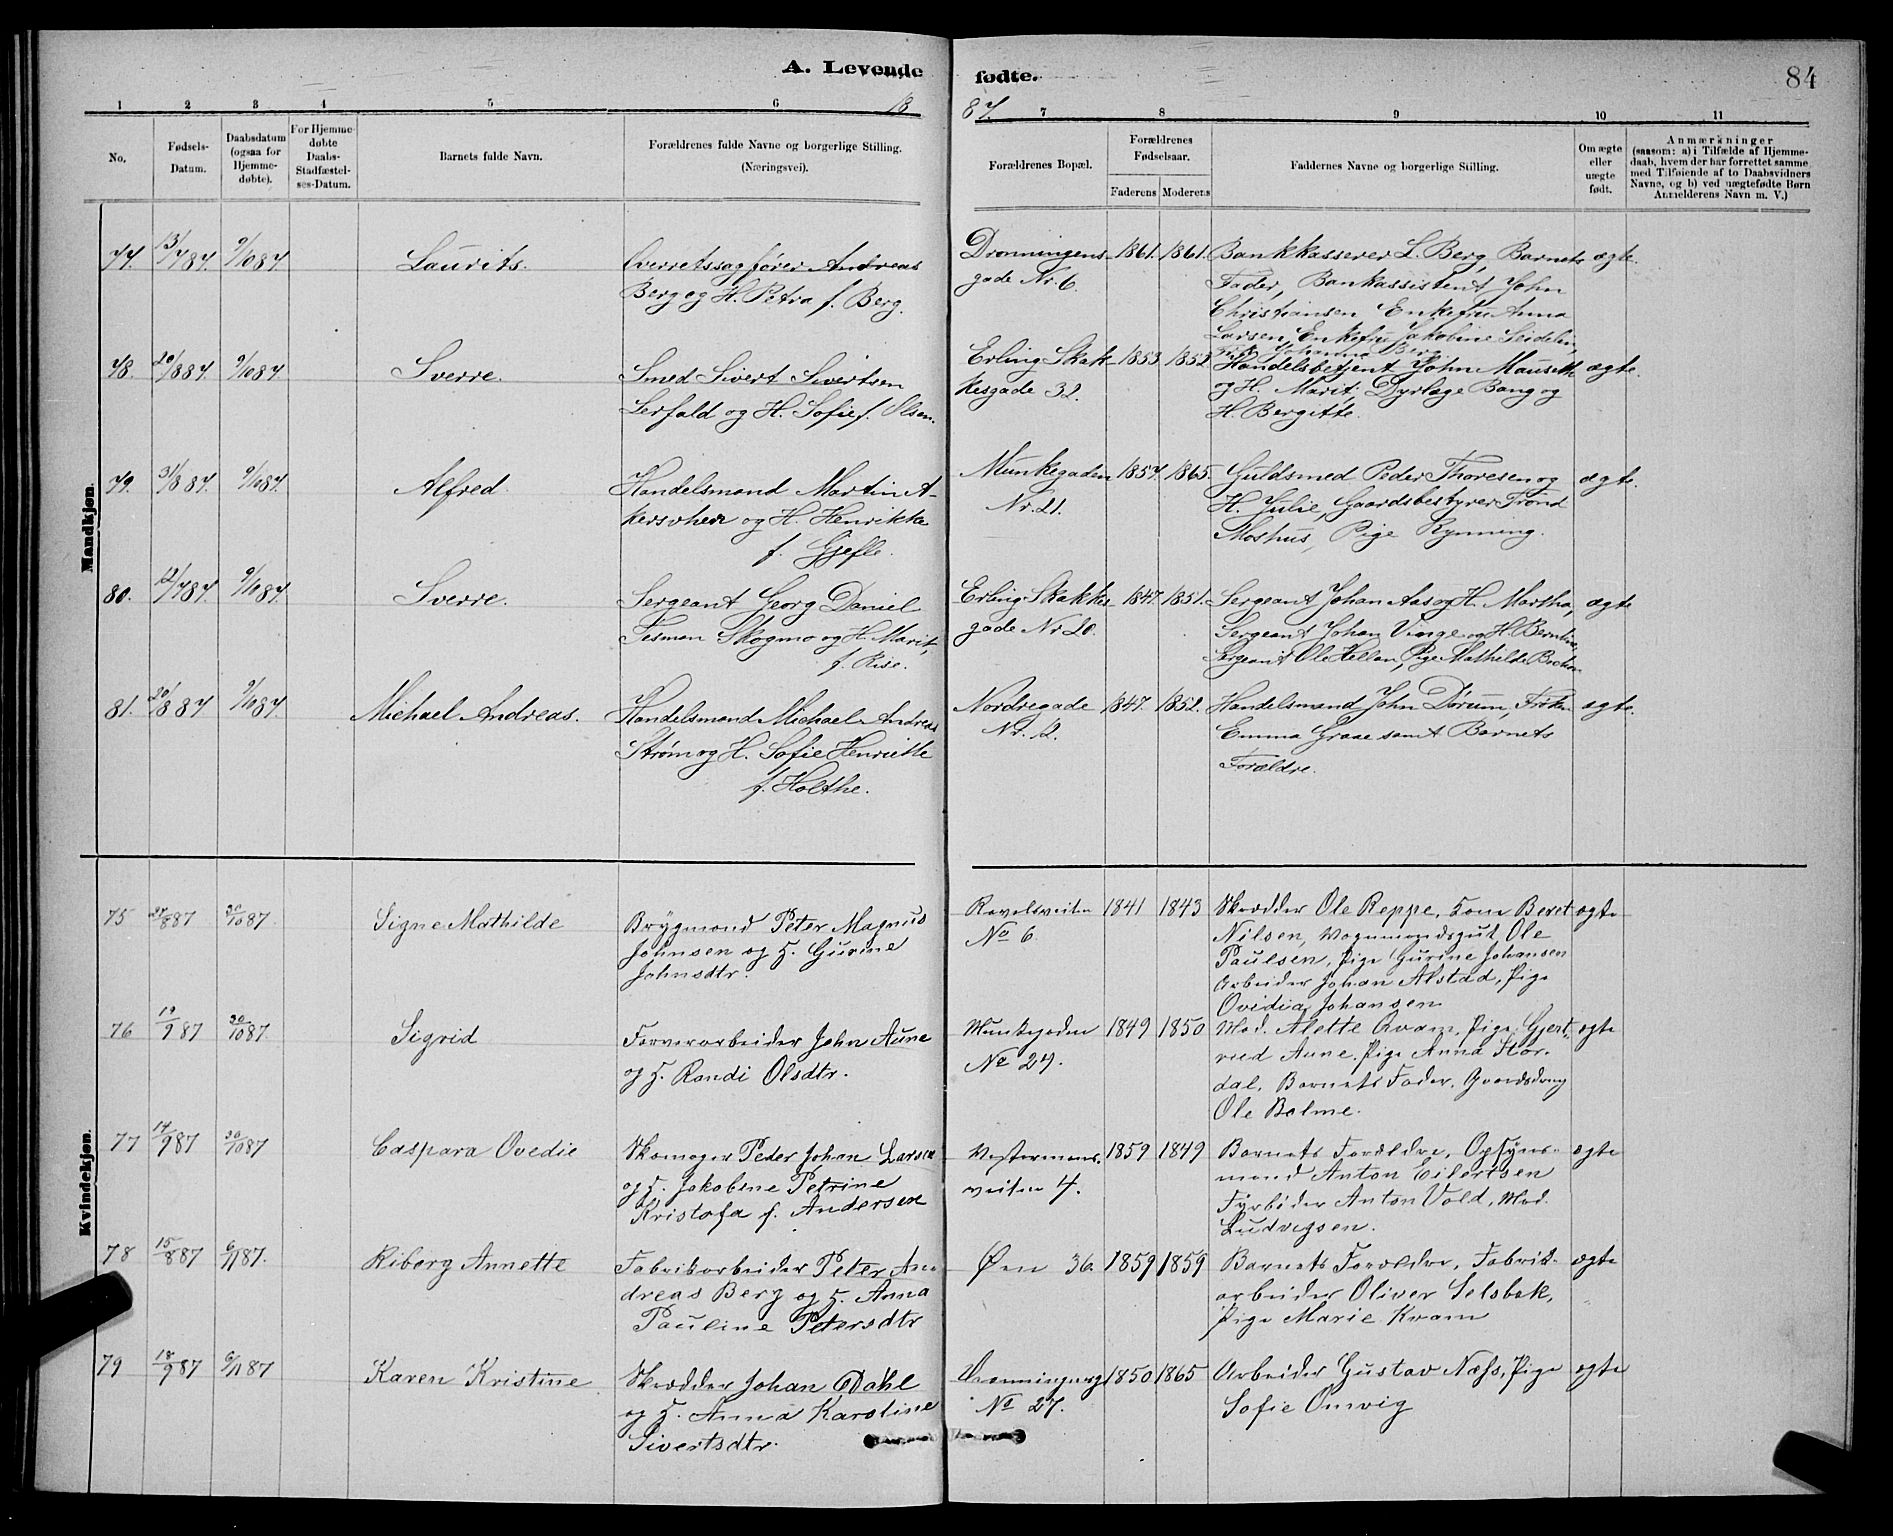 A. Levende fødte.
84
1887
1 2 3 4 5 6 7 8 9 10 11
No.
Fødsels-
Datum.
Daabsdatum
(ogsaa for
Hjemme-
døbte).
For Hjemme-
døbte
Daabs-
Stadfæstel-
ses-Datum.
Barnets fulde Navn.
Forældrenes fulde Navne og borgerlige Stilling.
(Næringsvei).
Forældrenes Bopæl.
Forældrenes
Fødselsaar.
Faderens Moderens
Faddernes Navne og borgerlige Stilling.
Om ægte
eller
uægte
født.
Anmærkninger
(saasom: a) i Tilfælde af Hjemme-
daab, hvem der har forrettet samme,
med Tilføiende af to Daabsvidners
Navne, og b) ved uægtefødte Børn
Anmelderens Navn m. V.)
Mandkjøn.
77. 13/7 87. 9/10 87. Laurits. Overretssagfører Andreas
Berg og H. Petra f. Berg.
Dronningens
gade Nr. 6.
1861. 1861.
Bankkasserer L. Berg, Barnets
Fader, Bankassistent John
Christiansen Enkefru Anna
Larsen, Enkefru Jakobine Seidelin,
Frk. Johanna Berg
ægte.
78. 20/8 87. 9/10 87. Sverre. Smed Sivert Sivertsen
Lerfald og H. Sofie f. Olsen.
Erling Skak-
kesgade 32.
1853 1852
Handelsbetjent John Mauseth
og H. Marit, Dyrlæge Bang og
H. Bergitte.
ægte.
79. 31/8 87. 9/10 87. Alfred. Handelsmand Martin A-
og H. Henrikke
f. Gjefle.
Munkegaden
Nr. 21.
1857 1865.
Guldsmed Peder Thoresen og
H. Julie, Gaardsbestyrer Trond
Moshus, Pige Rynning.
ægte.
80. 12/7 87. 9/10 87. Sverre. Sergeant Georg Daniel
Tesman Skogmo og H. Marit,
f. Rise.
Erling Skakkes
gade Nr 20.
1847. 1851.
Sergeant Johan Aas og H. Martha,
Sergeant Johan Vinge og H. Berntine,
Sergeant Ole Hellan, Pige Mathilde
ægte
81. 20/8 87 9/10 87 Michael Andreas. Handelsmand Michael Andreas
Strøm og H. Sofie Henriette
f. Holthe.
Nordregade
Nr. 12.
1847. 1852.
Handelsmand John Dørum, Frøken
Emma Graae samt Barnets
Forældre.
ægte.
Kvindekjøn.
75 27/8 87 30/10 87. Signe Mathilde Brygmand Peter Magnus
Johnsen og H. Gurine
Johnsdtr.
Ravelsveiten
No 6.
1841 1843
Skrædder Ole Reppe, Kone Beret
Nilsen, Vognmandsgut Ole
Paulsen, Pige Gurine Johansen
Arbeider Johan Alstad, Pige
Ovidia Johansen
ægte
76 19/9 87 30/10 87. Sigrid Farverarbeider John Aune
og H. Randi Olsdtr.
Munkegaden
No 27.
1849 1850
Mad. Alette Qvam, Pige Gjert-
rud Aune, Pige Anna Stor-
dal, Barnets Fader, Gaardsdreng
Ole Balme.
ægte
77 14/9 87 30/10 87 Caspara Ovedie Skomager Peder Johan Larsen
og H. Jakobine Petrine
Kristofa f. Andersen
Vestermans-
veiten 4.
1859 1849
Barnets Forældre, Opsyns-
mand Anton Eilertsen
Fyrbøder Anton Vold, Mad.
Ludvigsen.
ægte
78 15/8 87 6/11 87. Riborg Annette Fabrikarbeider Peter An-
dreas Berg og H. Anna
Pauline Petersdtr
Øen 36. 1859 1859
Barnets Forældre, Fabrik-
arbeider Oliver Selsbak,
Pige Marie Kvam
ægte
79 18/9 87 6/11 87 Karen Kristine Skrædder Johan Dahl
og H. Anna Karoline
Sivertsdtr.
Dronningensg
No 27.
1850 1865
Arbeider Gustav Næss, Pige
Sofie Omvig
ægte